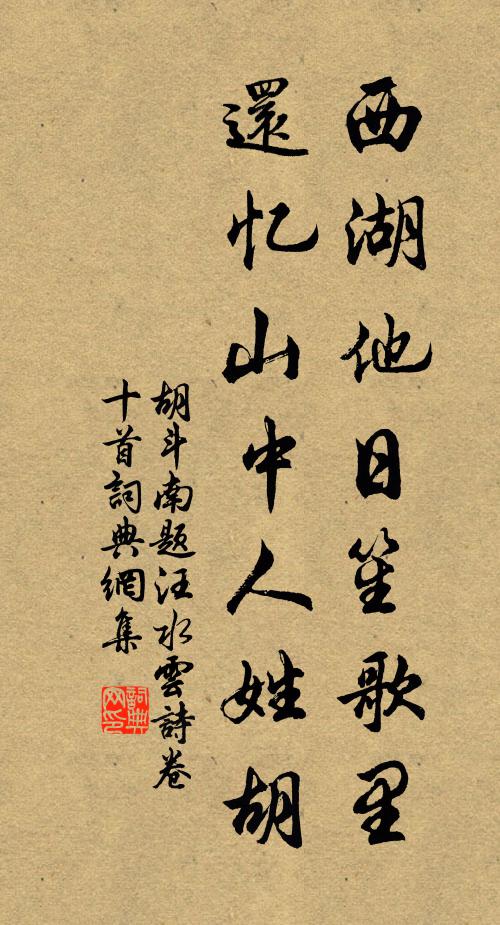 西湖他日笙歌里
還忆山中人姓胡
胡斗南题汪水雲詩卷
十首詞典網集
詞典
网印